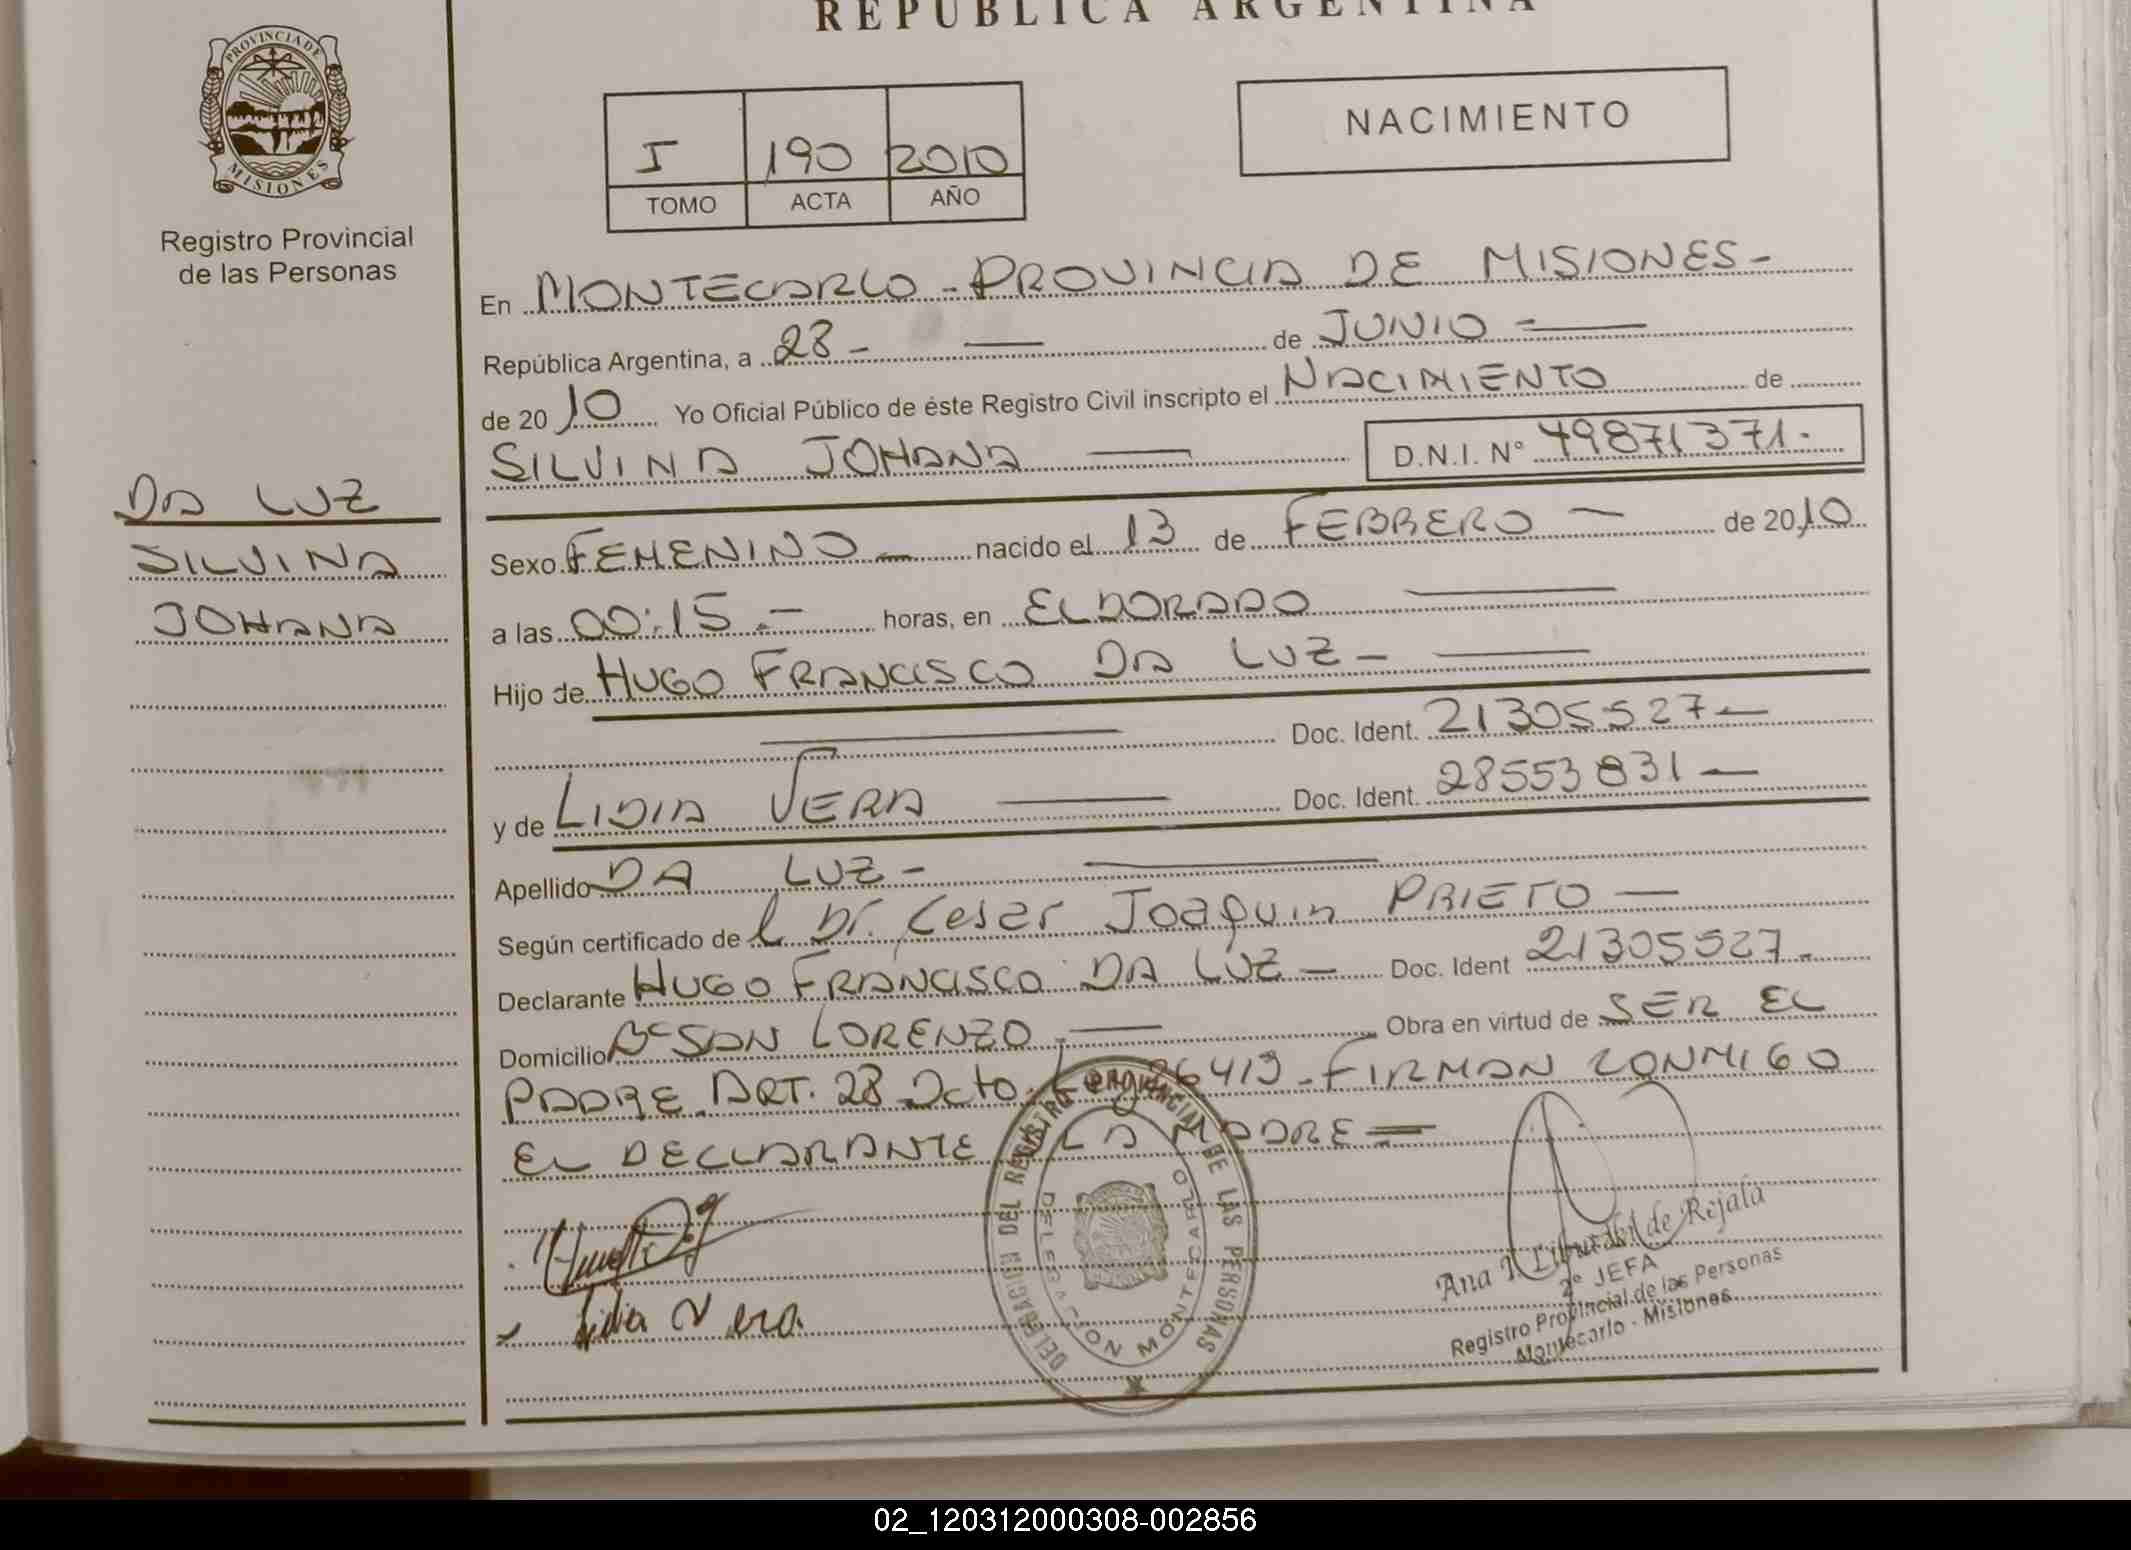 REPUBLICA ARGENTINA
PROVINCIA DE
MISIONES
Registro Provincial
de las Personas
I 190 2010
TOMO ACTA AÑO
NACIMIENTO
En MONTECARLO - PROVINCIA DE MISIONES -
República Argentina, a 28 - de JUNIO
de 2010 Yo Oficial Público de éste Registro Civil inscripto el NACIMIENTO de
SILVINA JOHANA D.N.I. Nº 49871371.
DA LUZ
SILVINA
JOHANA
Sexo FEMENINO - nacido el 13 de FEBRERO - de 2010
a las 00:15 - horas, en ELDORADO
Hijo de HUGO FRANCISCO DA LUZ -
Doc. Ident. 21305527 -
y de LIDIA VERA Doc. Ident. 28553831 -
Apellido DA LUZ -
Según certificado de l Dr. Cesar Joaquin PRIETO -
Declarante HUGO FRANCISCO DA LUZ - Doc. Ident 21305527.
Domicilio Bº SAN LORENZO Obra en virtud de SER EL
PADRE. ART. 28 Dcto. 26419. FIRMAN CONMIGO
EL DECLARANTE LA MADRE
DELEGACION DEL REGISTRO PROVINCIAL DE LAS PERSONAS
DELEGACION MONTECARLO
Lidia Vera
Ana de Rejala
2º JEFA
Registro Provincial de las Personas
Montecarlo - Misiones
02_120312000308-002856